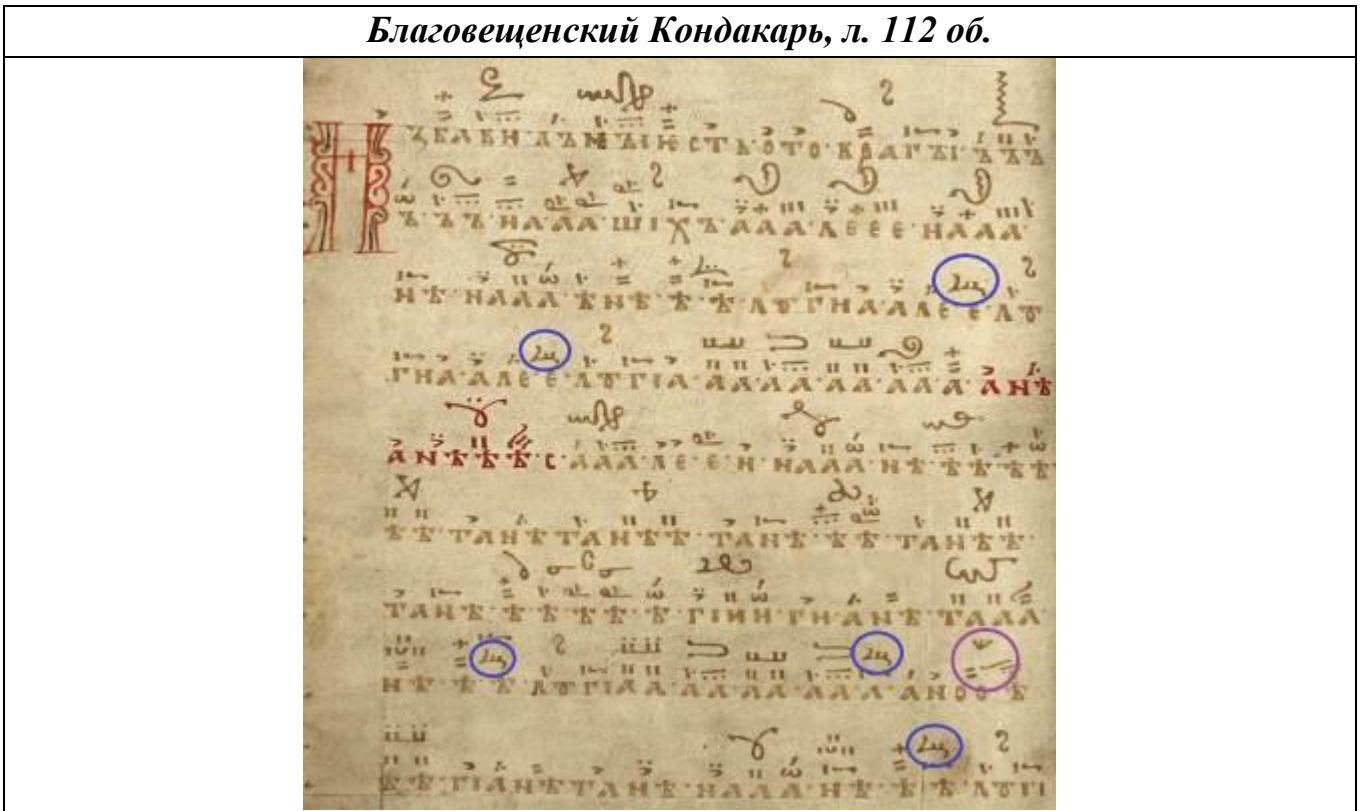 Благовещенский Кондакарь, л. 112 об.
ИꙀБАВИЛЪ НЪІ ѤСТЬ·ОТО·ВРАГЪІ·Ъ·Ъ·Ъ
Ъ·Ъ·Ъ·НА·АА·ШІХ·Ъ·А·А·А·Л·Е·Е·Е·НА·А·А
НѢ·НААА·ѢНѢ·Ѣ·Ѣ·ЛꙊГНА·АЛЕ·Е·ЛꙊ
ГНА·АЛЕ·Е·ЛꙊГІА·АА·АА·АА·АА·А·АНѢ
АНѢ·Ѣ·Ѣ·С·АААЛЕ·Е·Е·Н·НААА·НѢ·Ѣ·Ѣ·Ѣ·Ѣ
Ѣ·Ѣ·ТАНѢТАНѢѢ·ТАНѢ·Ѣ·Ѣ·ТАНѢѢ
ТАНѢ·Ѣ·Ѣ·Ѣ·Ѣ·Ѣ·ГІИНГНАНѢТААА
НѢ·Ѣ·Ѣ·ЛꙊГІАА·АА·АА·АА·А·АНОО·Ѣ
Ѣ·Ѣ·ГІАНѢТАНѢ·НААА·НѢ·Ѣ·Ѣ·ЛꙊГІ